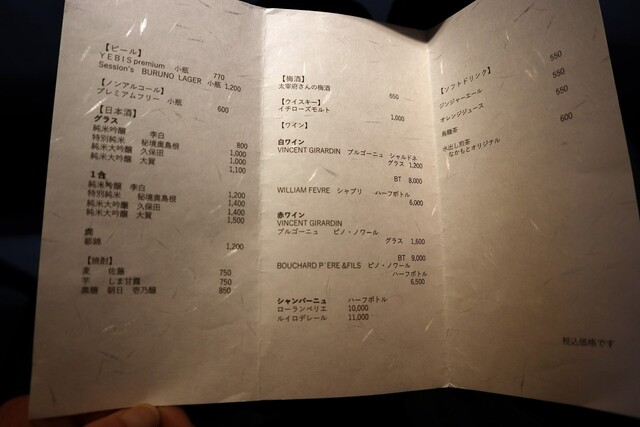 【ビール】
YEBISpremium 小瓶 770
Session's BURUNO LAGER 小瓶 1,200
【ノンアルコール】
プレミアムフリー 小瓶
600
【日本酒】
グラス
純米吟醸 李白 800
特別純米 秘境奥島根 1,000
純米大吟醸 久保田 1,000
純米大吟醸 大賀 1,100
1合
純米吟醸 李白 1,200
特別純米 秘境奥島根 1,400
純米大吟醸 久保田 1,400
純米大吟醸 大賀 1,500
1,200
【焼酎】
麦 佐藤 750
芋 しま甘露 750
黒糖 朝日 壱乃醸 850
【梅酒】
太宰府さんの梅酒
650
【ウイスキー】
イチローズモルト
1,000
【ワイン】
白ワイン
VINCENT GIRARDIN ブルゴーニュ シャルドネ
グラス 1,200
BT 8,000
WILLIAM FEVRE シャブリ ハーフボトル
6,000
赤ワイン
VINCENT GIRARDIN
ブルゴーニュ ピノ・ノワール
グラス 1,600
BT 9,000
BOUCHARD P`ERE &FILS ピノ・ノワール
ハーフボトル
6,500
シャンパーニュ ハーフボトル
ローランペリエ 10,000
ルイロデレール 11,000
【ソフトドリンク】
ジンジャーエール 550
オレンジジュース 550
烏龍茶 550
水出し煎茶 600
なかもとオリジナル
税込価格です